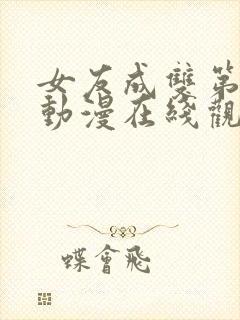 女友成雙第
動漫在綫觀
蝶會飛